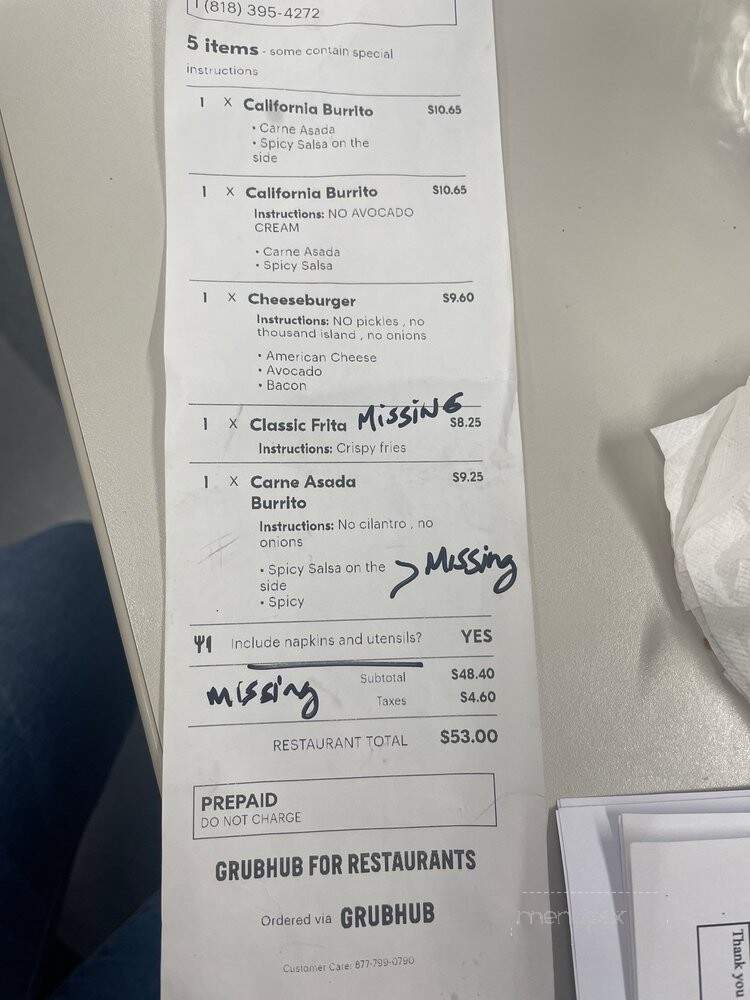 1 (818) 395-4272
5 items - some contain special
instructions
1 X California Burrito $10.65
• Carne Asada
• Spicy Salsa on the
side
1 X California Burrito $10.65
Instructions: NO AVOCADO
CREAM
• Carne Asada
• Spicy Salsa
1 X Cheeseburger $9.60
Instructions: NO pickles , no
thousand island , no onions
• American Cheese
• Avocado
• Bacon
1 X Classic Frita MissiNG $8.25
Instructions: Crispy fries
1 X Carne Asada $9.25
Burrito
Instructions: No cilantro , no
onions
• Spicy Salsa on the > Missing
side
• Spicy
Include napkins and utensils? YES
missing
Subtotal $48.40
Taxes $4.60
RESTAURANT TOTAL $53.00
PREPAID
DO NOT CHARGE
GRUBHUB FOR RESTAURANTS
Ordered via GRUBHUB
Customer Care: 877-799-0790
Thank you